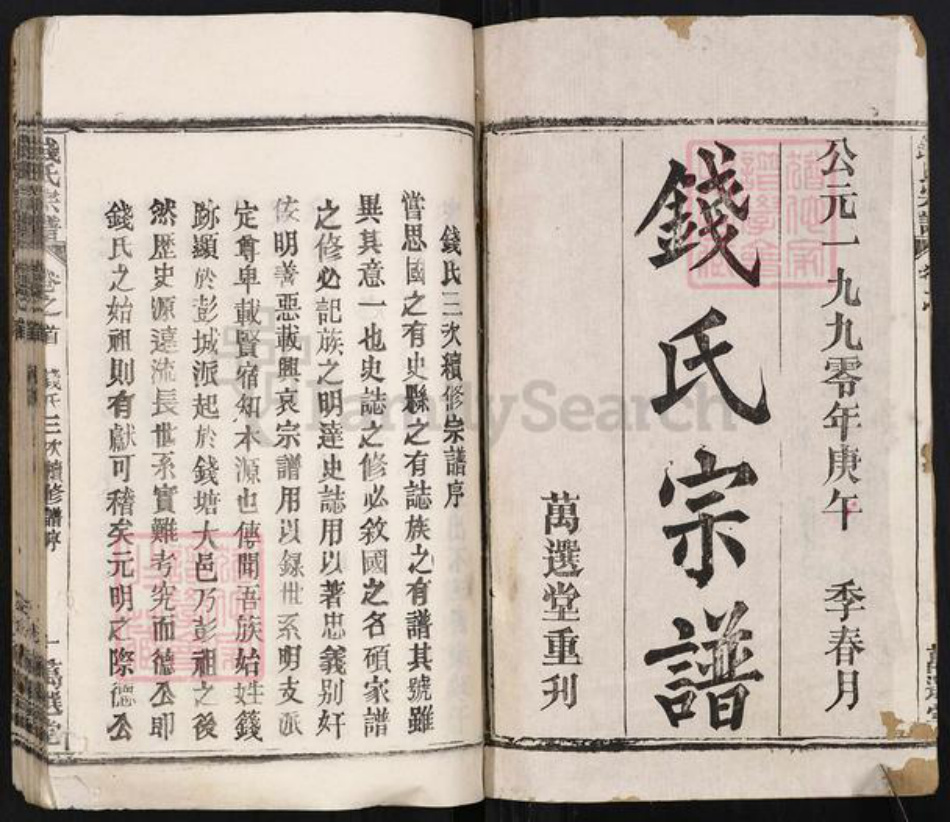 公元一九九零年庚午 季春月
錢氏宗譜
萬選堂重刋
錢氏三次續修宗譜序
嘗思國之有史縣之有誌族之有譜其號雖
異其意一也史誌之修必敘國之名碩家譜
之修必記族之明達史誌用以著忠義别奸
佞明善惡載興哀宗譜用以錄世系明支派
定尊卑載賢宿知木源也傳聞吾族始姓錢
跡顯於彭城派起於錢塘大邑乃彭祖之後
然歷史源遠流長世系實難考究而德公即
錢氏之始祖則有獻可稽矣元明之際德公
錢氏宗譜 卷之首 錢氏三次續修譜序 一 萬選堂
FamilySearch